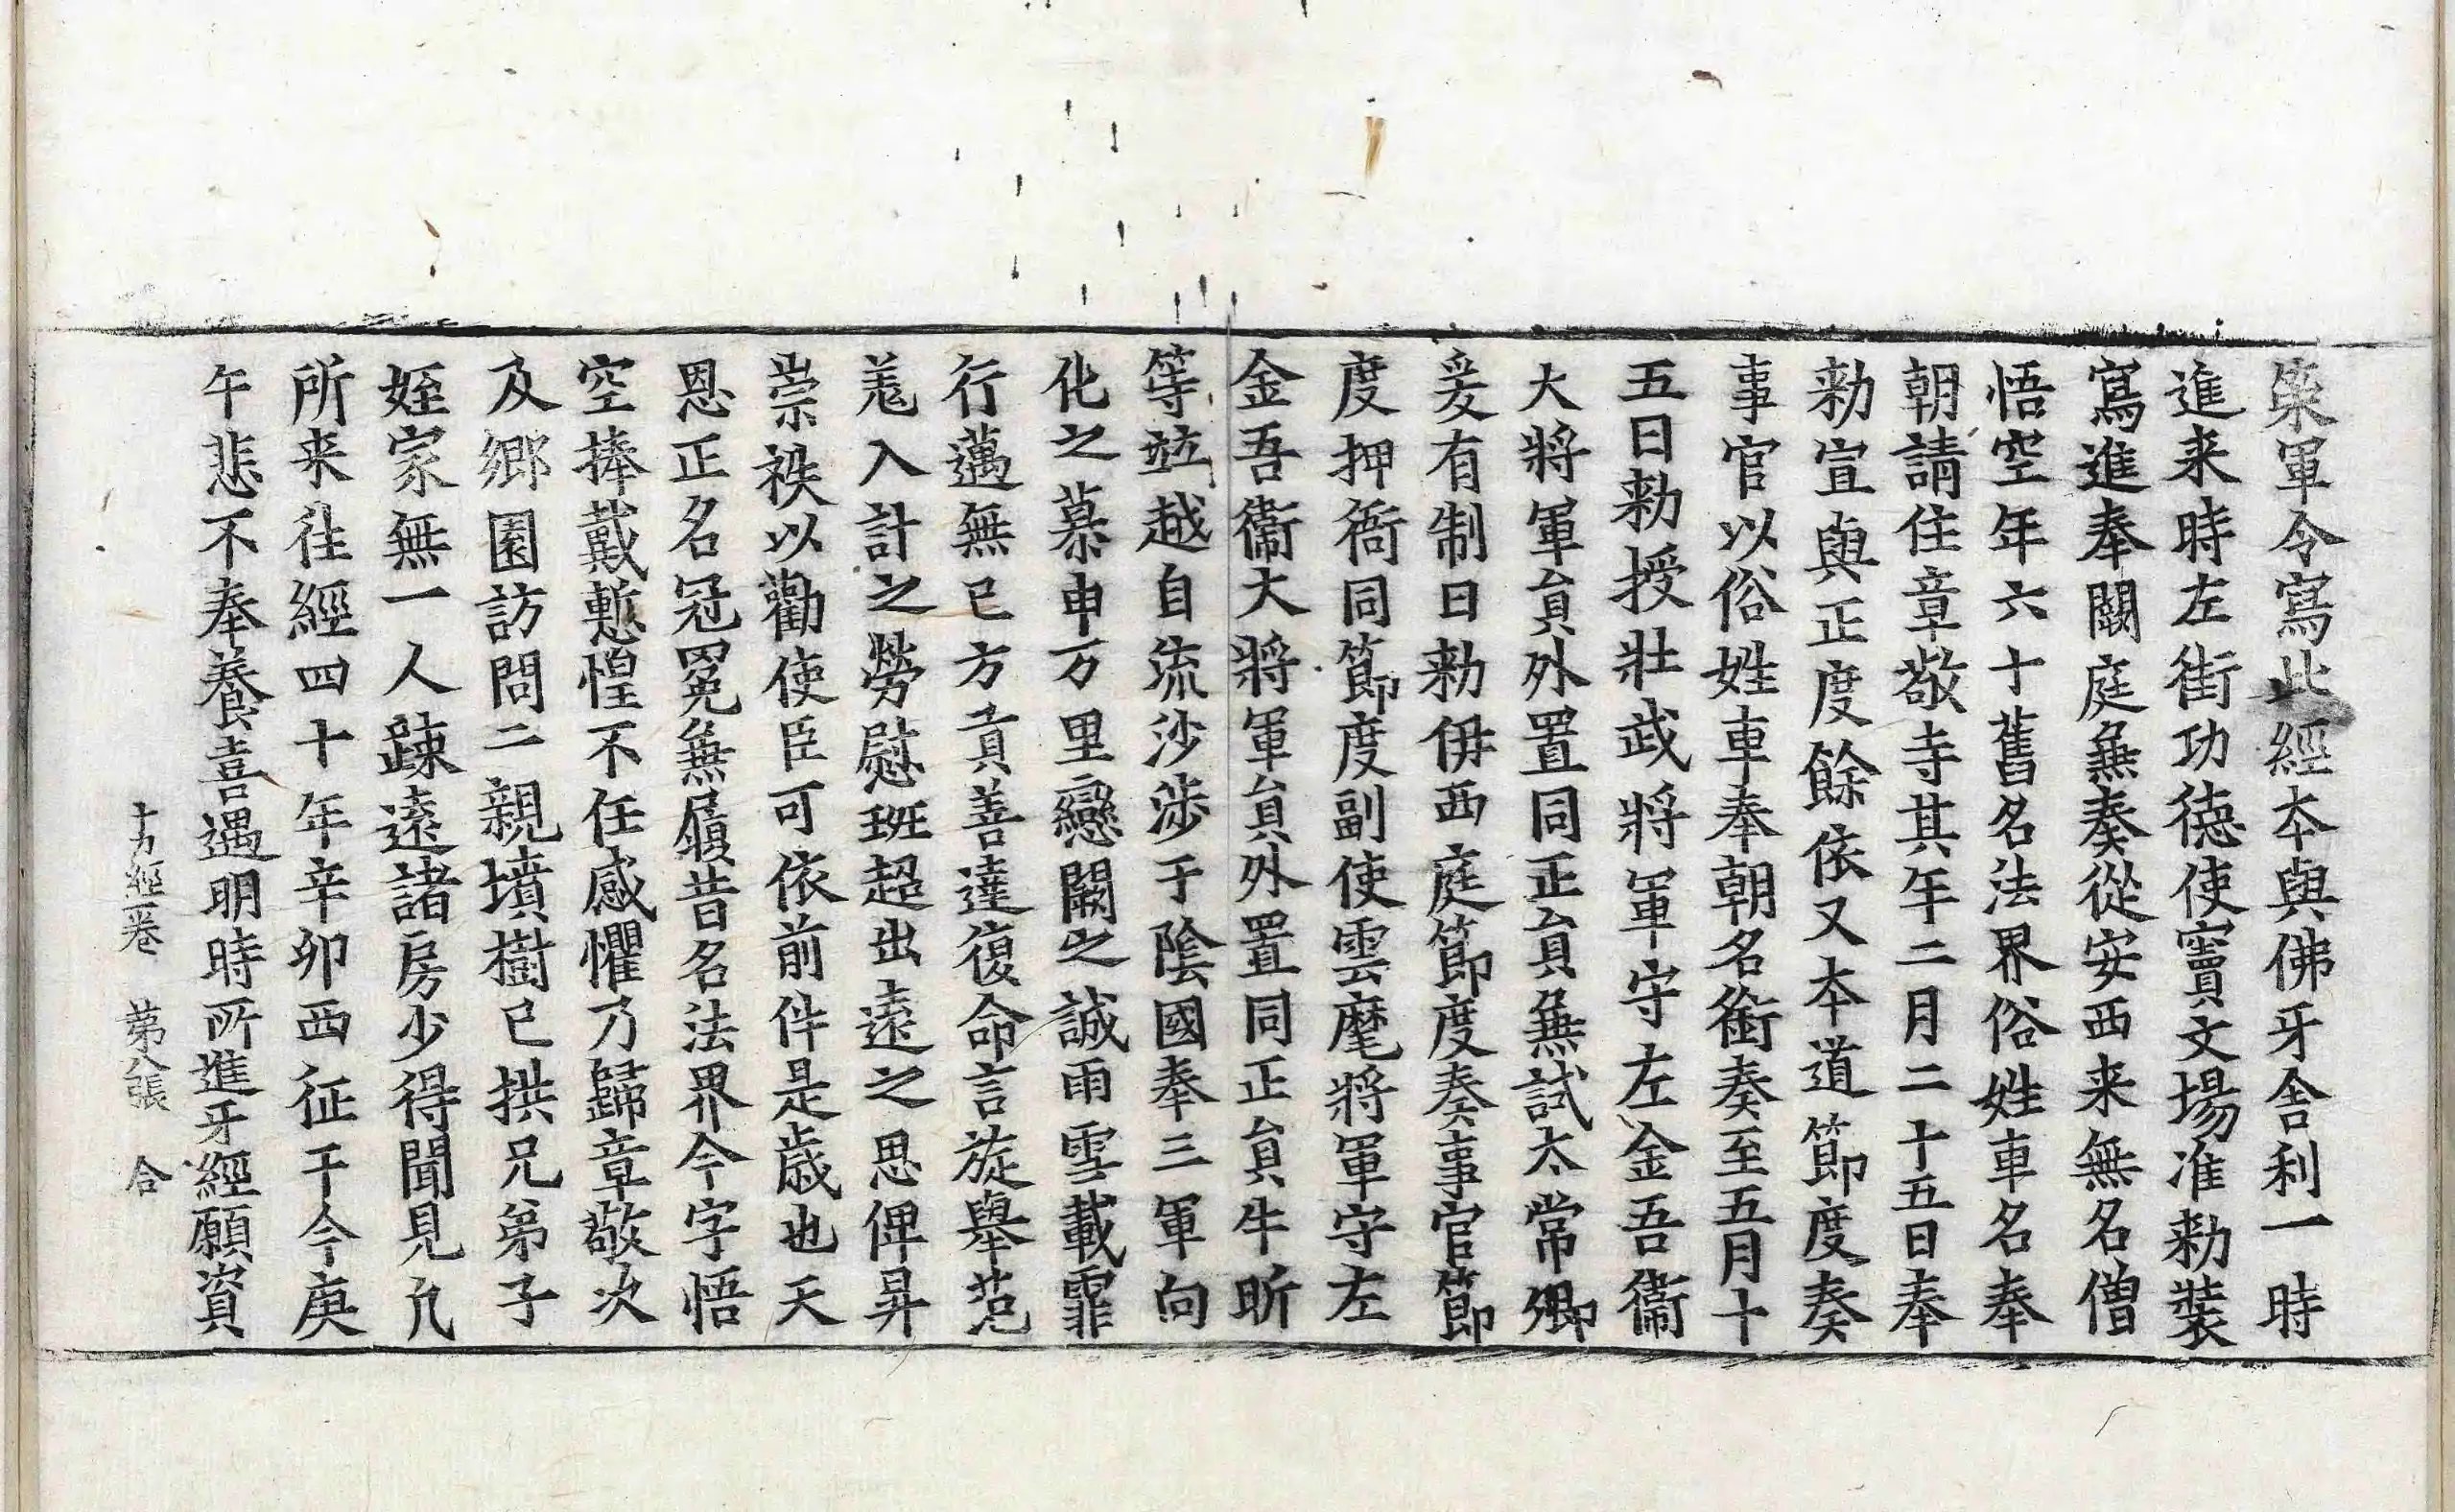 柒軍令寫此經本與佛牙舎利一時
進来時左街功德使竇文場准勅裝
寫進奉闕庭無奏從安西来無名僧
悟空年六十舊名法界俗姓車名奉
朝請住章敬寺其年二月二十五日奉
勅宣與正度餘依又本道節度奏
事官以俗姓車奉朝名銜奏至五月十
五日勅授壯武將軍守左金吾衛
大將軍貟外置同正貟無試太常卿
爰有制曰勅伊西庭節度奏事官節
度押衙同節度副使雲麾將軍守左
金吾衛大將軍貟外置同正貟牛昕
等竝越自流沙渉于陰國奉三軍向
化之慕申万里戀闕之誠雨雪載霏
行邁無已方貢善達復命言旋舉范
羗入計之勞慰班超出遠之思俾昇
崇袟以勸使臣可依前件是歳也天
恩正名冠冕無履昔名法界今字悟
空捧戴慙惶不任感懼乃歸章敬次
及鄉園訪問二親墳樹已拱兄弟子
姪家無一人踈遠諸房少得聞見凡
所来往經四十年辛卯西征于今庚
午悲不奉養喜遇明時所進牙經願資
十力經一卷 第八張 合